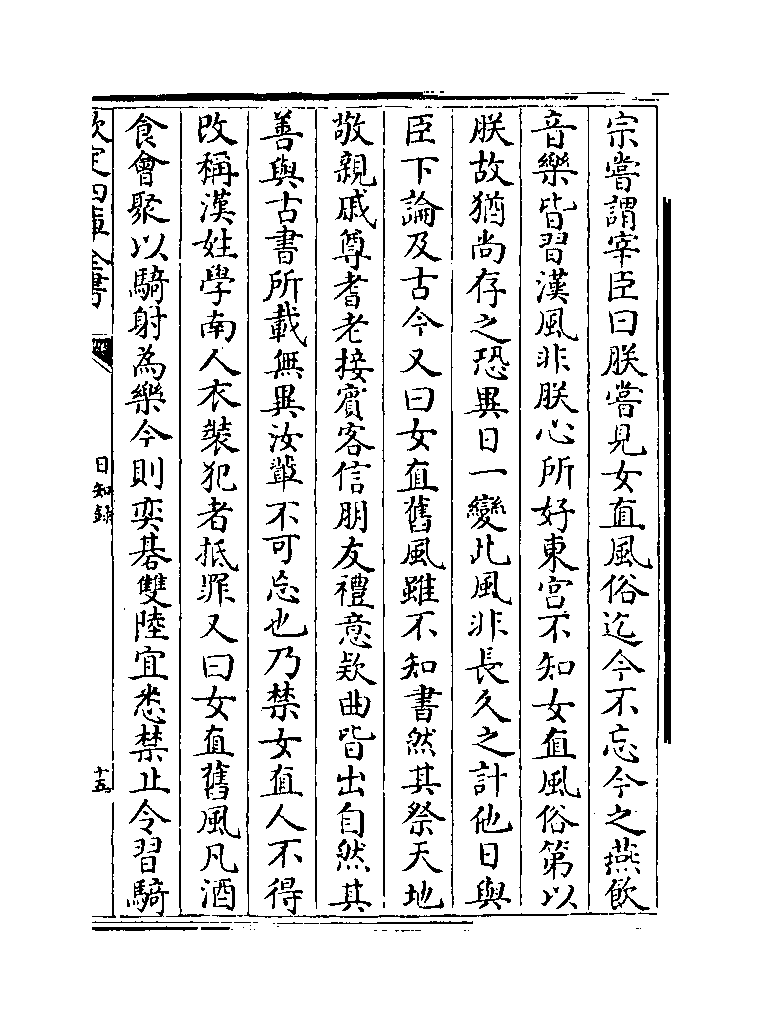 宗嘗謂宰臣曰朕嘗見女直風俗迄今不忘今之燕飲
音樂皆習漢風非朕心所好東宮不知女直風俗第以
朕故猶尚存之恐異日一變此風非長久之計他日與
臣下論及古今又曰女直舊風雖不知書然其祭天地
敬親戚尊耆老接賓客信朋友禮意欵曲皆出自然其
善與古書所載無異汝輩不可忘也乃禁女直人不得
改稱漢姓學南人衣裝犯者抵罪又曰女直舊風凡酒
食會聚以騎射為樂今則奕棊雙陸宜悉禁止令習騎
欽定四庫全書
日知錄
十五